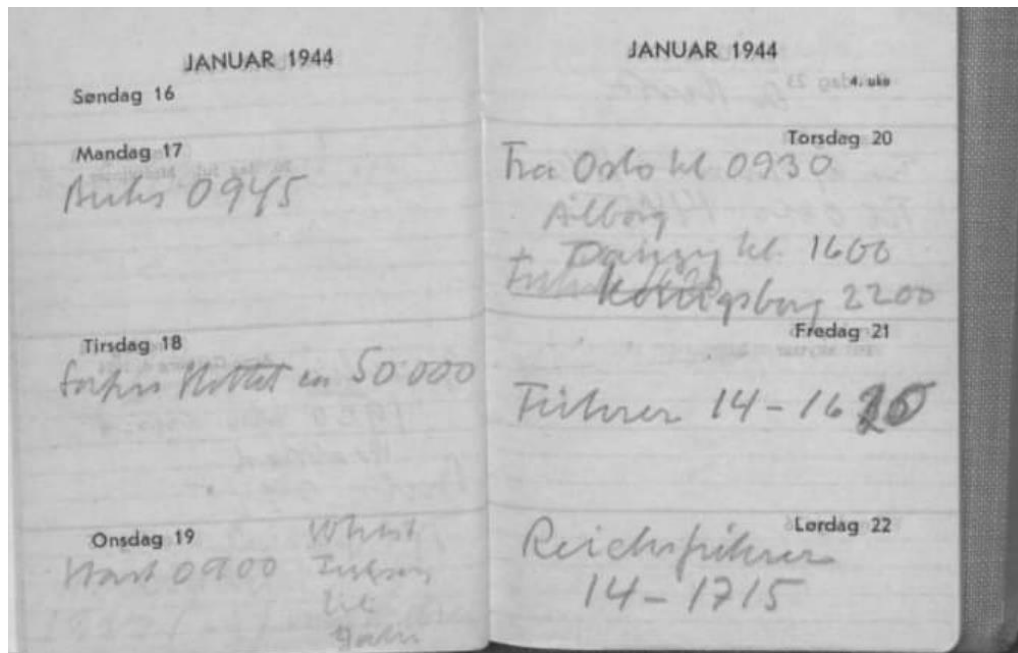 JANUAR 1944
Søndag 16
Mandag 17
0945
Tirsdag 18
Slottet 50 000
Onsdag 19
Start 0900
JANUAR 1944
4. uke
Torsdag 20
Fra Oslo kl 0930
Ålborg
Danzig kl. 1600
Königsberg 2200
Fredag 21
Führer 14-1620
Lørdag 22
Reichsführer
14-1715